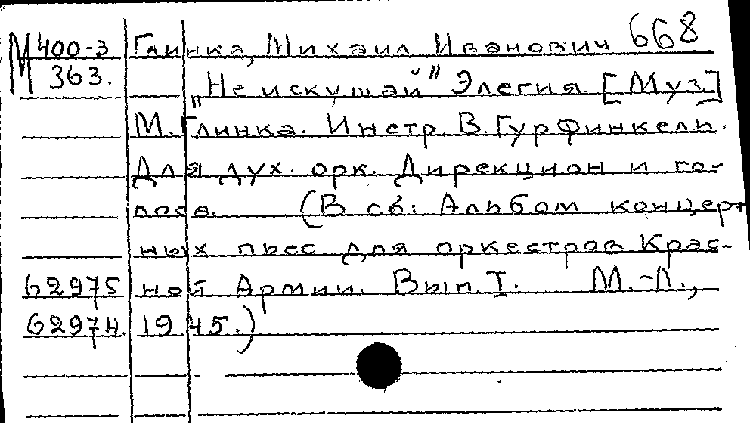 М 400-3 Глинка, Михаил Иванович 668
363. "Не искушай" Элегия [Муз.]
М. Глинка. Инстр. В. Гурфинкель.
Для дух. орк. Дирекцион и го-
лоса. (В сб: Альбом концерт
ных пьес для оркестров Крас-
62975 ной Армии. Вып. I. М.-Л.,
62974 1945.)